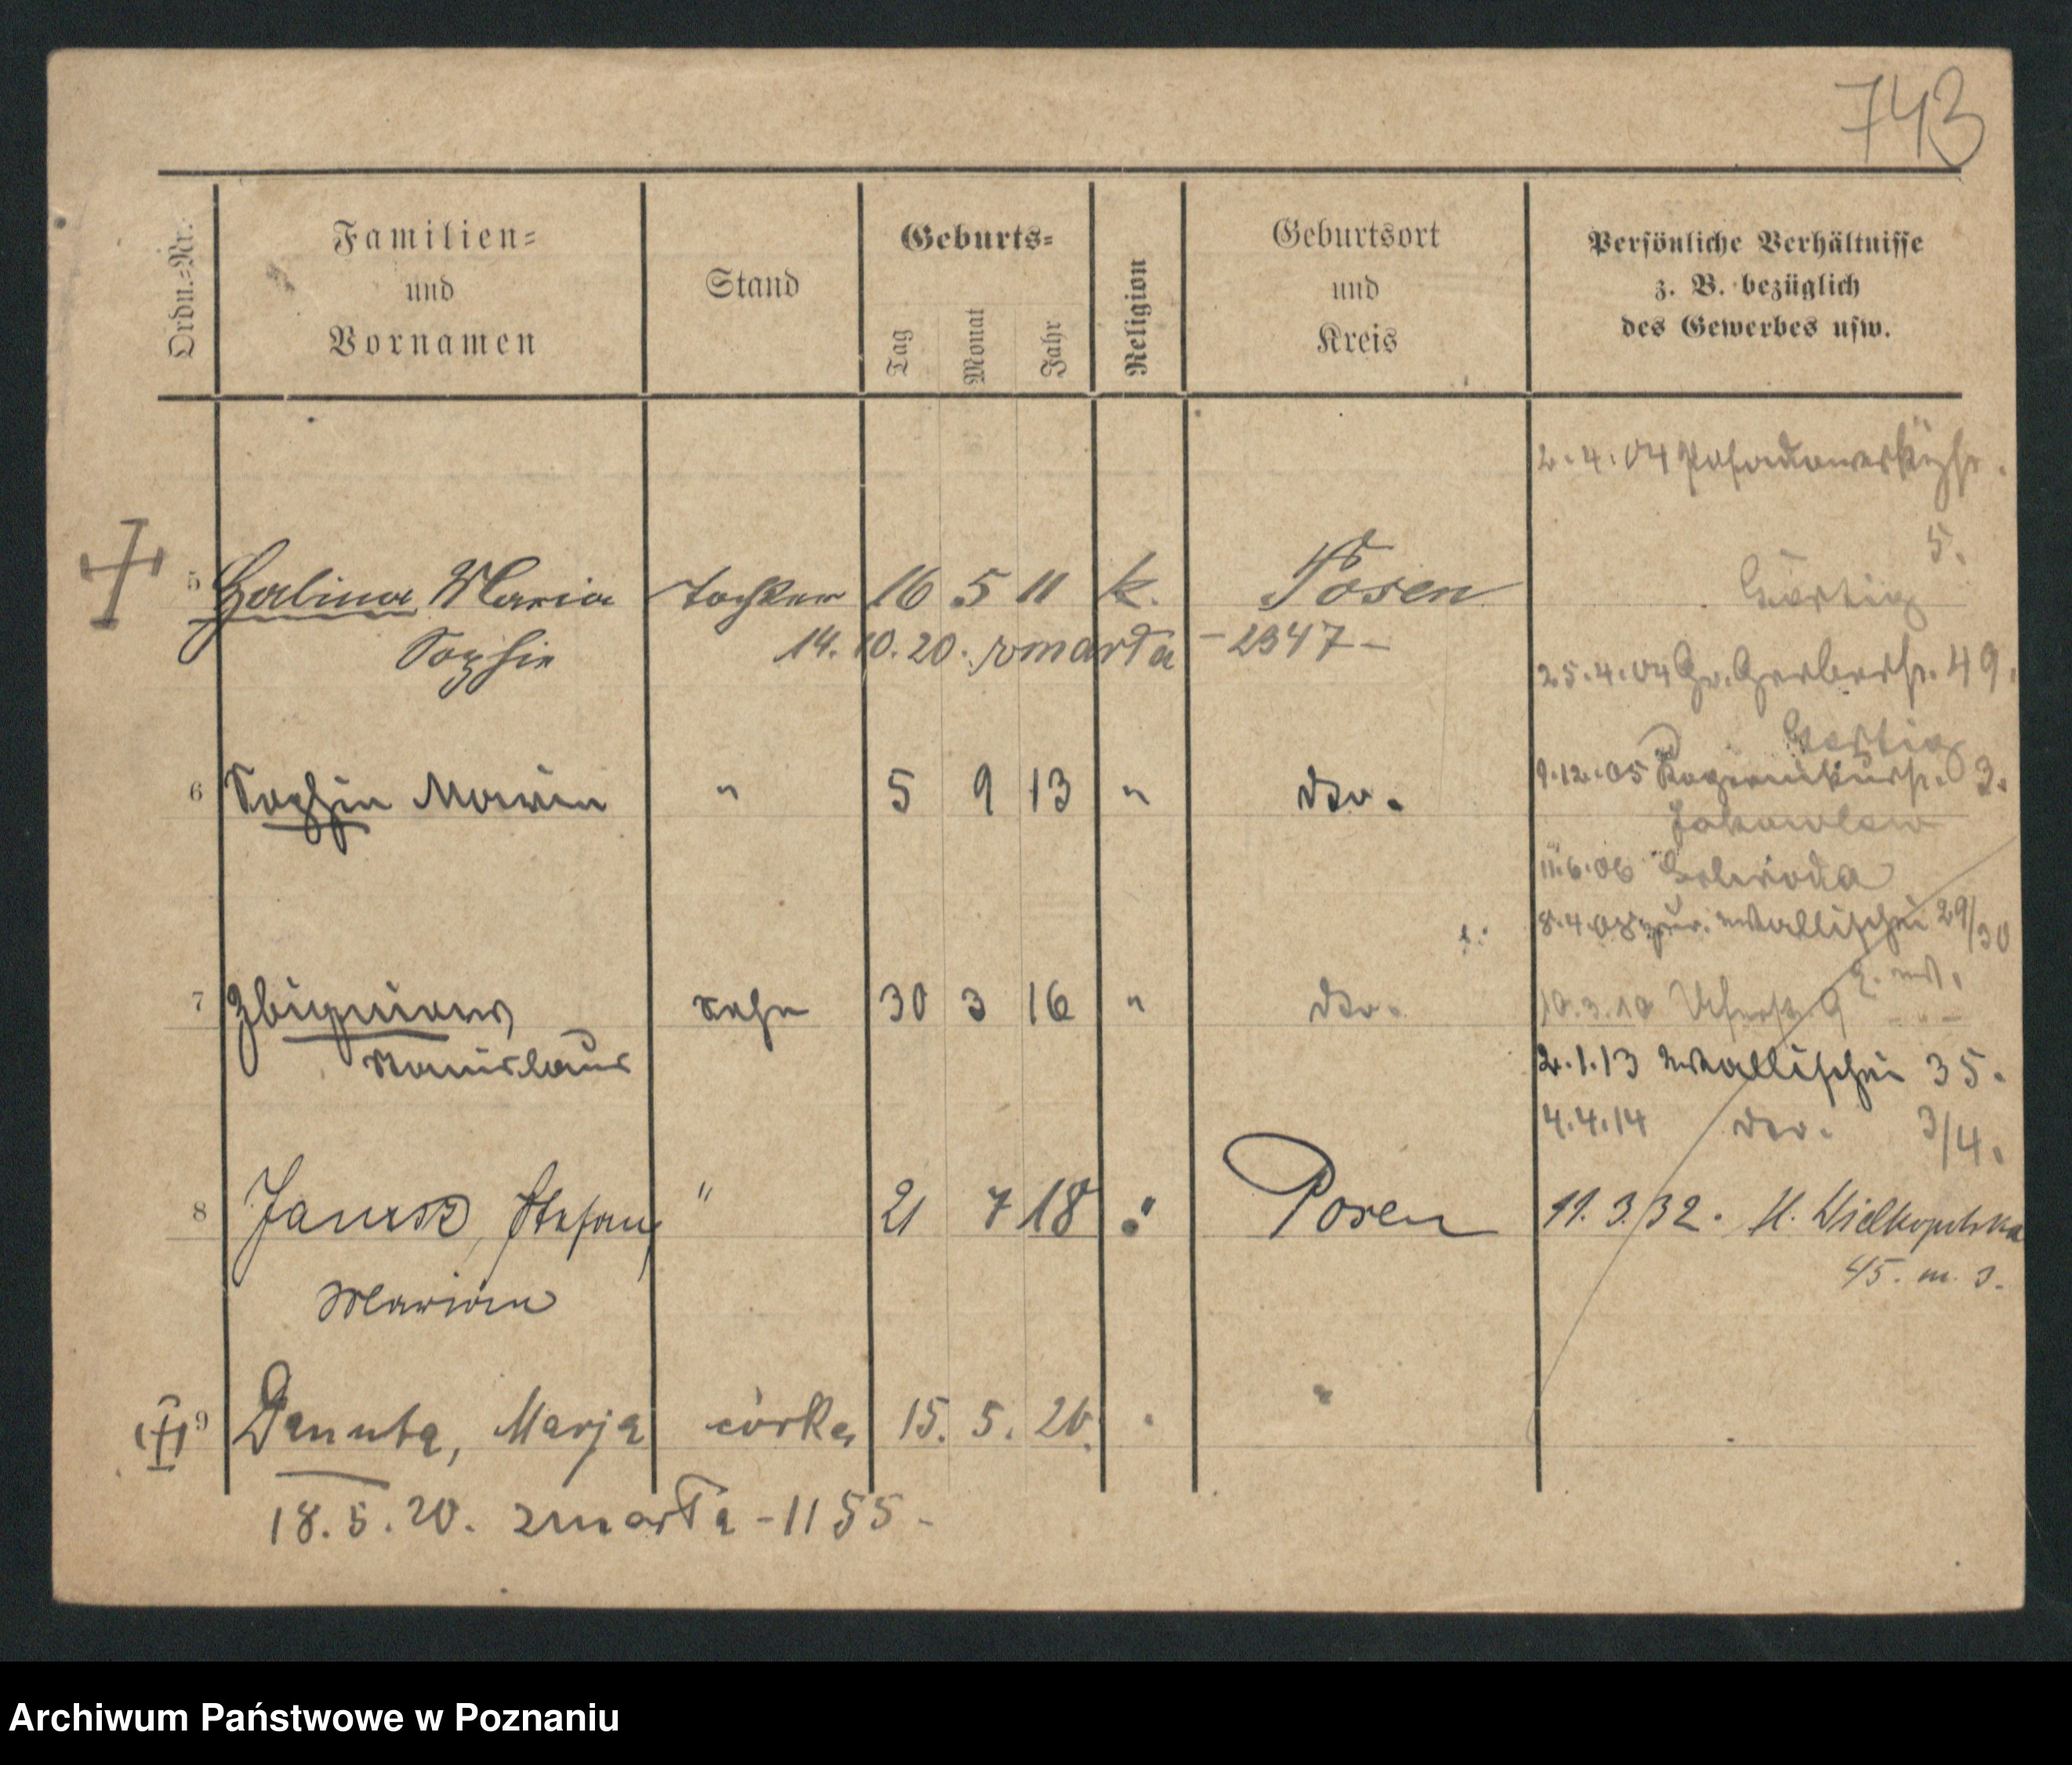 743
Ordn.=Nr.
Familien=
und
Vornamen
Stand
Geburts=
Tag
Monat
Jahr
Religion
Geburtsort
und
Kreis
Persönliche Verhältnisse
z. B. bezüglich
des Gewerbes usw.
2.4.04 Posadowskystr.
5.
Görtig
5 Halina Maria Tochter 16 5 11 k. Posen
Sophie 14.10.20. zmarła - 2347 -
25.4.04 Gr. Gerberstr. 49.
6 Sophia Maria " 5 9 13 " dto.
9.12.05 3.
11.6.06
8.4.08 Wallischei 29/30
7 Zbigniew Sohn 30 3 16 " dto.
Stanislaus
10.3.10 9
2.1.13 Wallischei 35.
4.4.14 dto. 3/4.
8 Janusz, Stefan " 21 7 18 " Posen
Marian
11.3.32. Wielkopolska
45. m. 3.
9 Danuta, Marja córka 15. 5. 20. "
18.5.20. zmarła - 1155 -
Archiwum Państwowe w Poznaniu